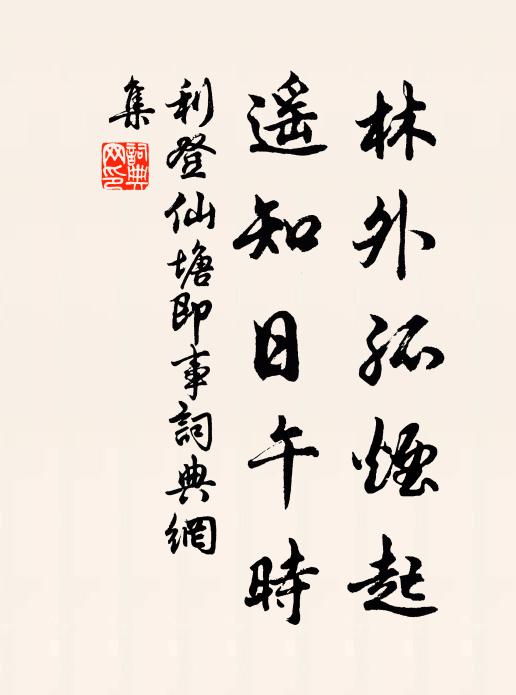 林外孤煙起
遥知日午時
利登仙塘即事詞典網
集
詞典網印